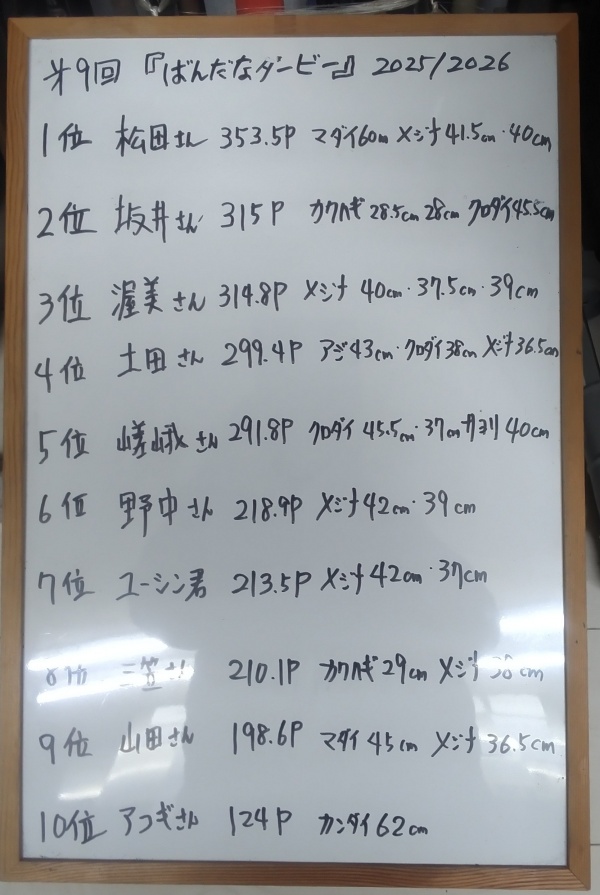 第9回『ばんだなダービー』2025/2026
1位 松田さん 353.5P マダイ60cm メジナ41.5cm・40cm
2位 坂井さん 315P カワハギ28.5cm 28cm クロダイ45.5cm
3位 渥美さん 314.8P メジナ 40cm・37.5cm・39cm
4位 土田さん 299.4P アジ43cm・クロダイ38cm メジナ36.5cm
5位 嵯峨さん 291.8P クロダイ 45.5cm・37cm サヨリ40cm
6位 野中さん 218.9P メジナ42cm・39cm
7位 ユーシン君 213.5P メジナ42cm・37cm
8位 三笠さん 210.1P カワハギ29cm メジナ38cm
9位 山田さん 198.6P マダイ45cm メジナ36.5cm
10位 アツギさん 124P カンダイ62cm